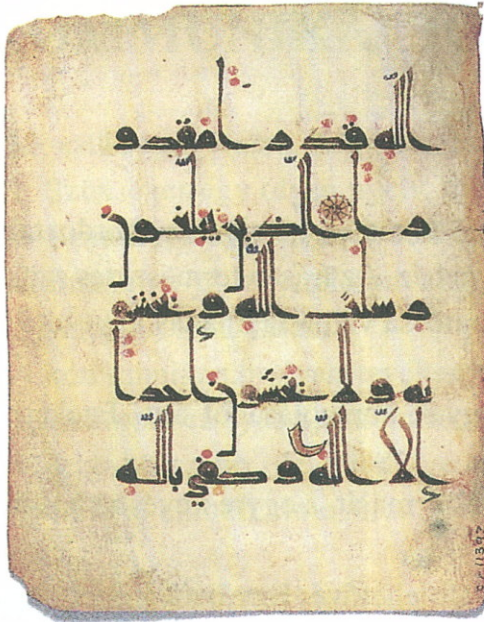 اللّه قدرا مقدو
را الّذين يبلّغون
رسلت اللّه و يخشو
نه و لا يخشون احدا
إلاّ اللّه و كفي باللّه